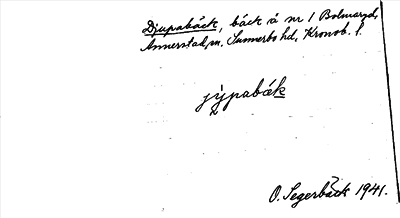 Djupabäck, bäck å nr 1 Bolmaryd,
Annerstad, sn. Sunnerbo hd, Kronob. l.
jỳpabák
O. Segerbäck 1941.